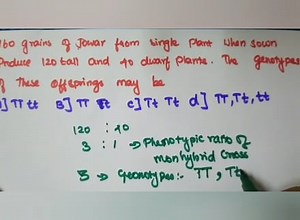 160 grains of Jowar from single plant when sown
Produce 120 tall and 40 dwarf plants. The genotypes
of these offsprings may be
a] TT tt B] TT c] Tt Tt d] TT, Tt, tt
120 : 40
3 : 1 → Phenotypic ratio of
monohybrid Cross
3 → Geonotypes:- TT, Tt